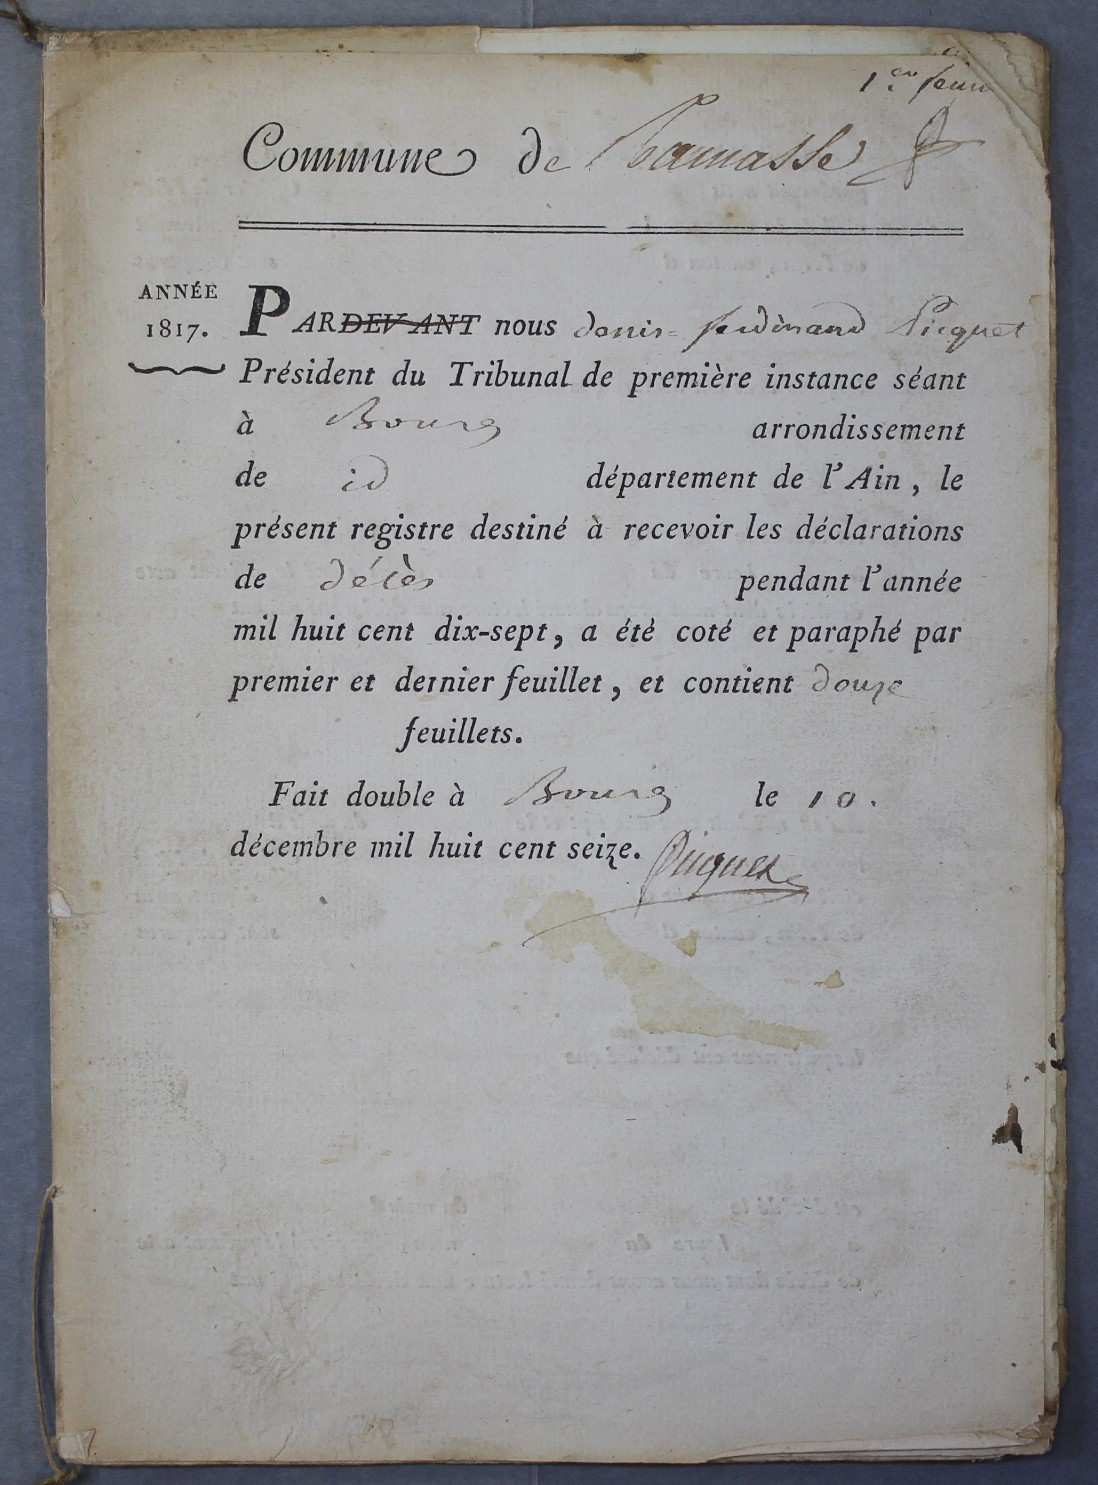 1.er feuil
Commune de Ramasse
ANNÉE
1817.
PARDEVANT nous denis-ferdinand Picquet
Président du Tribunal de première instance séant
à Bourg arrondissement
de id département de l'Ain, le
présent registre destiné à recevoir les déclarations
de décès pendant l'année
mil huit cent dix-sept, a été coté et paraphé par
premier et dernier feuillet, et contient douze
feuillets.
Fait double à Bourg le 10.
décembre mil huit cent seize. Picquet